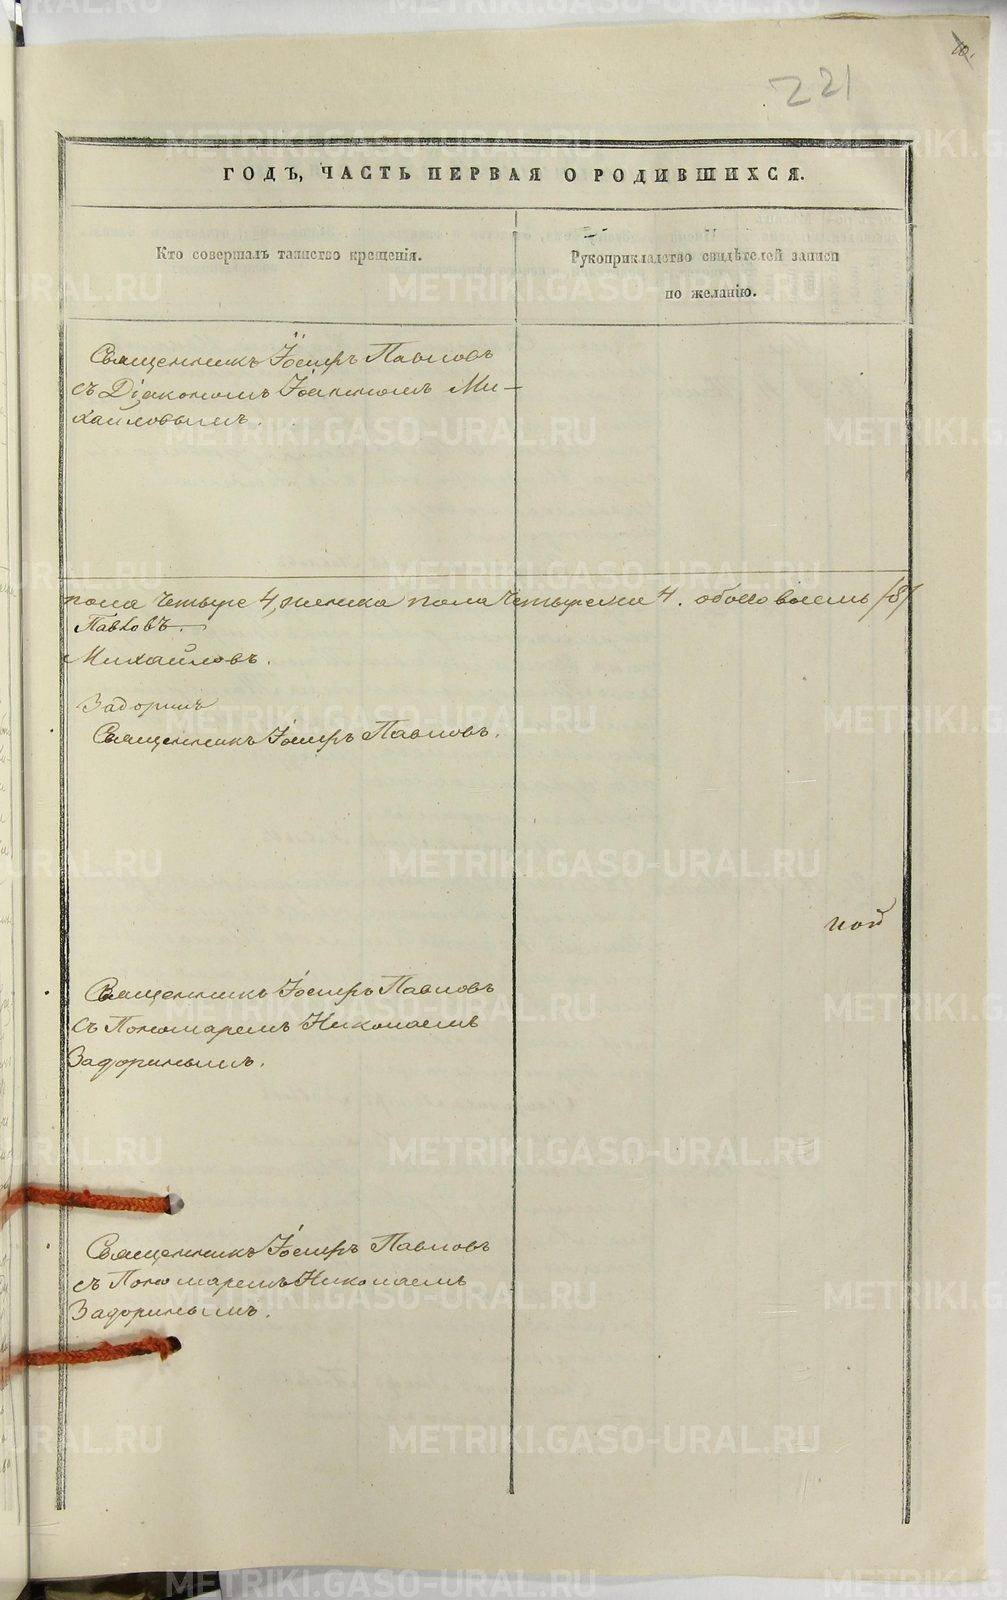 10.
221
ГОДЪ, ЧАСТЬ ПЕРВАЯ О РОДИВШИХСЯ.
Кто совершалъ таинство крещенія.
Рукоприкладство свидѣтелей записи
по желанію.
Священникъ Іосифъ Павловъ
съ Діакономъ Іоанномъ Ми-
хайловымъ.
пола четыре 4, женска пола четыреже 4. обоего восемь /8/
Павловъ.
Михайловъ.
Задоринъ
Священникъ Іосифъ Павловъ.
Священникъ Іосифъ Павловъ
съ Пономаремъ Николаемъ
Задоринымъ.
Священникъ Іосифъ Павловъ
съ Пономаремъ Николаемъ
Задоринымъ.
METRIKI.GASO-URAL.RU